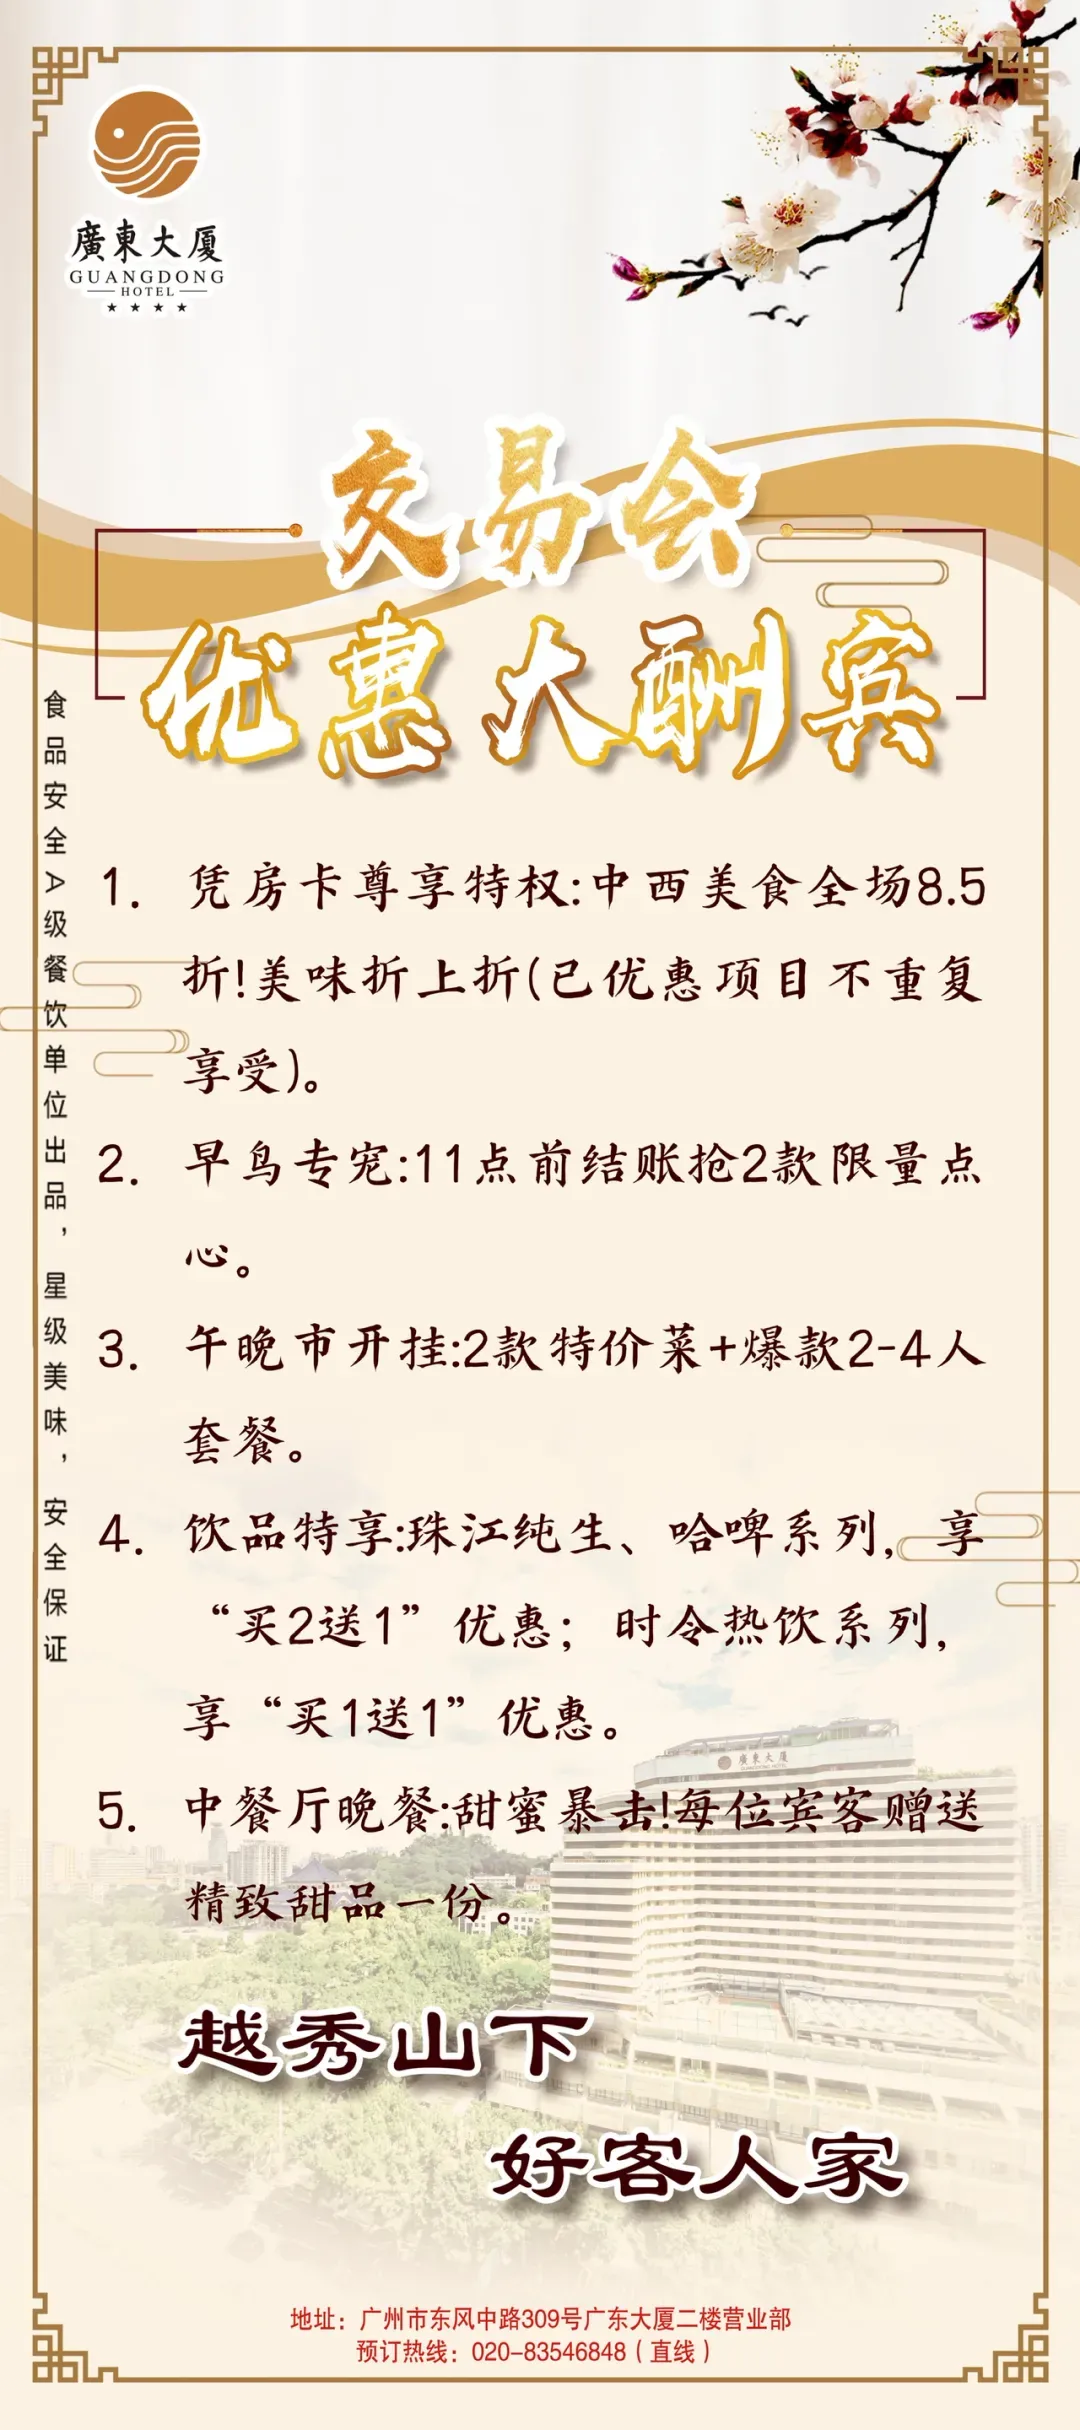 廣東大厦
GUANGDONG
HOTEL
交易会
优惠大酬宾
食品安全A级餐饮单位出品，星级美味，安全保证
1. 凭房卡尊享特权:中西美食全场8.5
折!美味折上折(已优惠项目不重复
享受)。
2. 早鸟专宠:11点前结账抢2款限量点
心。
3. 午晚市开挂:2款特价菜+爆款2-4人
套餐。
4. 饮品特享:珠江纯生、哈啤系列，享
“买2送1”优惠；时令热饮系列，
享“买1送1”优惠。
5. 中餐厅晚餐:甜蜜暴击!每位宾客赠送
精致甜品一份。
廣東大厦
越秀山下
好客人家
地址：广州市东风中路309号广东大厦二楼营业部
预订热线：020-83546848（直线）